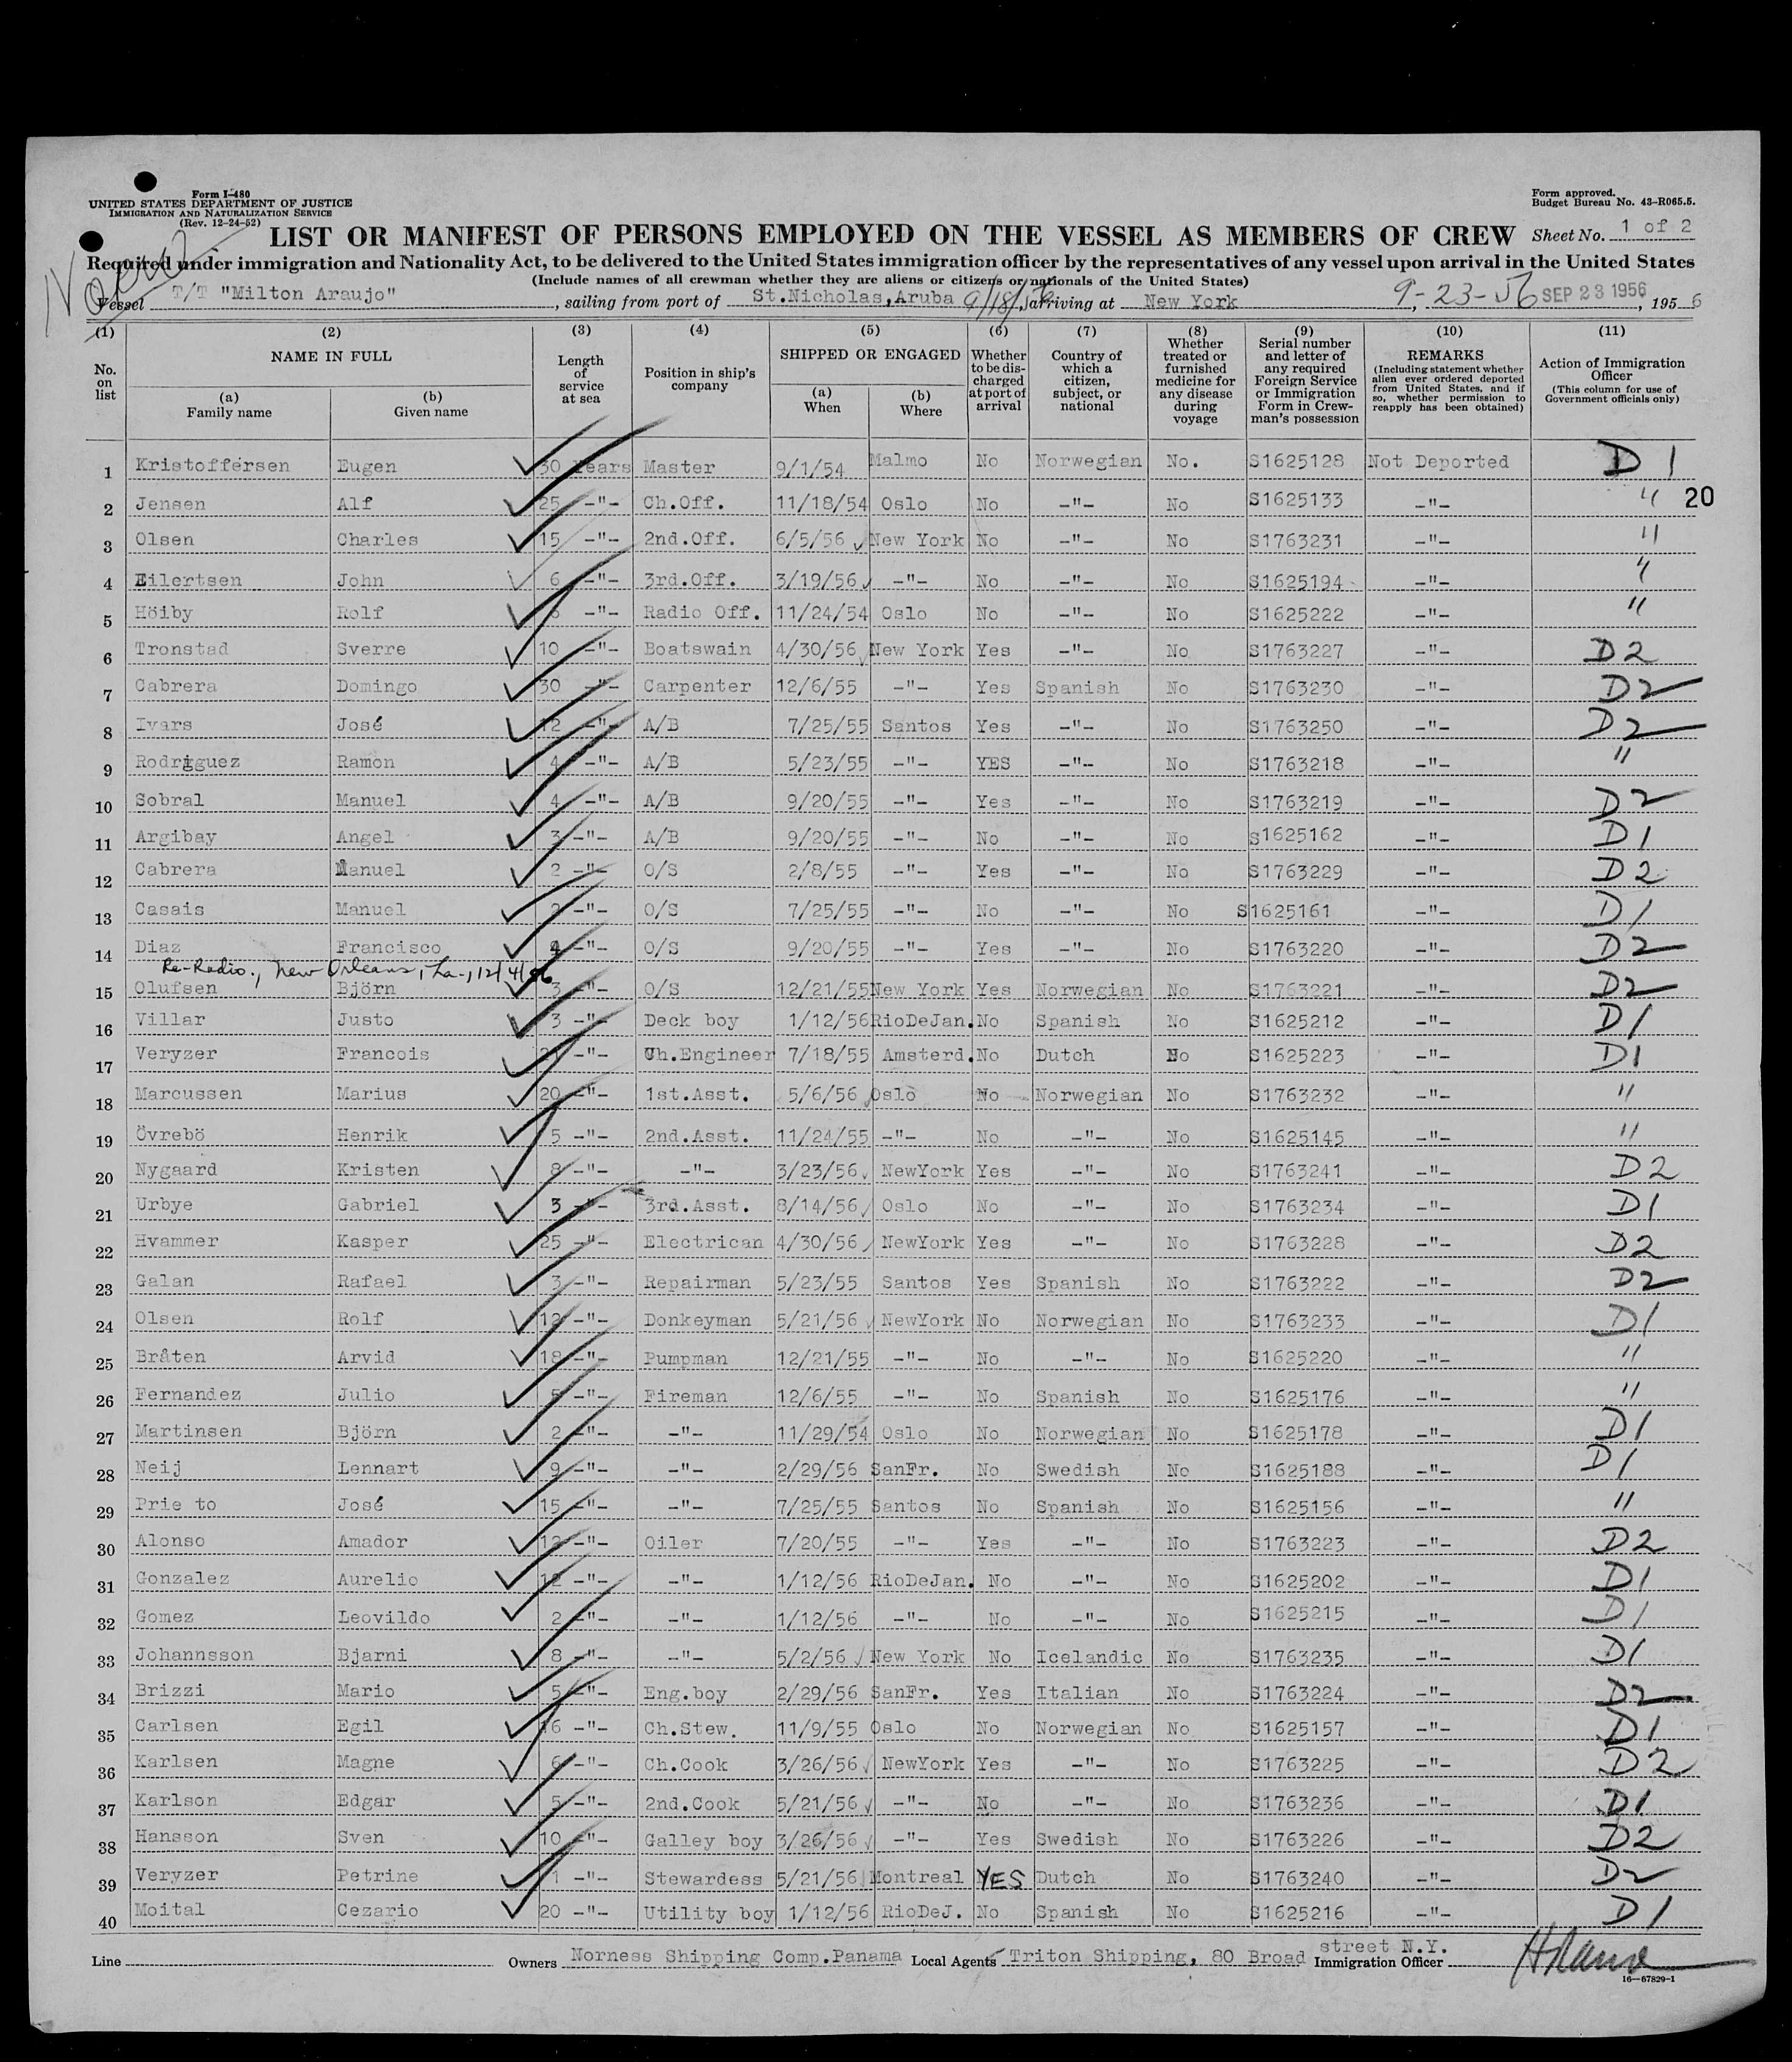 Form I-480
UNITED STATES DEPARTMENT OF JUSTICE
IMMIGRATION AND NATURALIZATION SERVICE
(Rev. 12-24-52)
Form approved.
Budget Bureau No. 43-R065.5.
LIST OR MANIFEST OF PERSONS EMPLOYED ON THE VESSEL AS MEMBERS OF CREW Sheet No. 1 of 2
Required under immigration and Nationality Act, to be delivered to the United States immigration officer by the representatives of any vessel upon arrival in the United States
(Include names of all crewman whether they are aliens or citizens or nationals of the United States)
Vessel T/T "Milton Araujo", sailing from port of St.Nicholas,Aruba 9/18/56, arriving at New York, 9-23-56 SEP 23 1956, 1956
(1) (2) (3) (4) (5) (6) (7) (8) (9) (10) (11)
No. on list NAME IN FULL (a) Family name (b) Given name Length of service at sea Position in ship's company SHIPPED OR ENGAGED (a) When (b) Where Whether to be discharged at port of arrival Country of which a citizen, subject, or national Whether treated or furnished medicine for any disease during voyage Serial number and letter of any required Foreign Service or Immigration Form in Crewman's possession REMARKS (Including statement whether alien ever ordered deported from United States, and if so, whether permission to reapply has been obtained) Action of Immigration Officer (This column for use of Government officials only)
1 Kristoffersen Eugen 30 Years Master 9/1/54 Malmo No Norwegian No. S1625128 Not Deported D 1
2 Jensen Alf 25 -"- Ch.Off. 11/18/54 Oslo No -"- No S1625133 -"- " 20
3 Olsen Charles 15 -"- 2nd.Off. 6/5/56 New York No -"- No S1763231 -"- "
4 Eilertsen John 6 -"- 3rd.Off. 3/19/56 -"- No -"- No S1625194 -"- "
5 Höiby Rolf -"- Radio Off. 11/24/54 Oslo No -"- No S1625222 -"- "
6 Tronstad Sverre 10 -"- Boatswain 4/30/56 New York Yes -"- No S1763227 -"- D2
7 Cabrera Domingo 30 -"- Carpenter 12/6/55 -"- Yes Spanish No S1763230 -"- D2
8 Ivars José 12 -"- A/B 7/25/55 Santos Yes -"- No S1763250 -"- D2
9 Rodriguez Ramon 4 -"- A/B 5/23/55 -"- YES -"- No S1763218 -"- "
10 Sobral Manuel 4 -"- A/B 9/20/55 -"- Yes -"- No S1763219 -"- D2
11 Argibay Angel 3 -"- A/B 9/20/55 -"- No -"- No S1625162 -"- D1
12 Cabrera Manuel 2 -"- O/S 2/8/55 -"- Yes -"- No S1763229 -"- D2
13 Casais Manuel 2 -"- O/S 7/25/55 -"- No -"- No S1625161 -"- D1
14 Diaz Francisco 4 -"- O/S 9/20/55 -"- Yes -"- No S1763220 -"- D2
Re-Radio., New Orleans, La., 12/4/56
15 Olufsen Björn 3 -"- O/S 12/21/55 New York Yes Norwegian No S1763221 -"- D2
16 Villar Justo 3 -"- Deck boy 1/12/56 RioDeJan. No Spanish No S1625212 -"- D1
17 Veryzer Francois -"- Ch.Engineer 7/18/55 Amsterd. No Dutch No S1625223 -"- D1
18 Marcussen Marius 20 -"- 1st.Asst. 5/6/56 Oslo No Norwegian No S1763232 -"- "
19 Övrebö Henrik 5 -"- 2nd.Asst. 11/24/55 -"- No -"- No S1625145 -"- "
20 Nygaard Kristen 8 -"- -"- 3/23/56 NewYork Yes -"- No S1763241 -"- D2
21 Urbye Gabriel 3 -"- 3rd.Asst. 8/14/56 Oslo No -"- No S1763234 -"- D1
22 Hvammer Kasper 25 -"- Electrican 4/30/56 NewYork Yes -"- No S1763228 -"- D2
23 Galan Rafael 3 -"- Repairman 5/23/55 Santos Yes Spanish No S1763222 -"- D2
24 Olsen Rolf 12 -"- Donkeyman 5/21/56 NewYork No Norwegian No S1763233 -"- D1
25 Bråten Arvid 18 -"- Pumpman 12/21/55 -"- No -"- No S1625220 -"- "
26 Fernandez Julio 5 -"- Fireman 12/6/55 -"- No Spanish No S1625176 -"- "
27 Martinsen Björn 2 -"- -"- 11/29/54 Oslo No Norwegian No S1625178 -"- D1
28 Neij Lennart 9 -"- -"- 2/29/56 SanFr. No Swedish No S1625188 -"- D1
29 Prie to José 15 -"- -"- 7/25/55 Santos No Spanish No S1625156 -"- "
30 Alonso Amador 12 -"- Oiler 7/20/55 -"- Yes -"- No S1763223 -"- D2
31 Gonzalez Aurelio 12 -"- -"- 1/12/56 RioDeJan. No -"- No S1625202 -"- D1
32 Gomez Leovildo 2 -"- -"- 1/12/56 -"- No -"- No S1625215 -"- D1
33 Johannsson Bjarni 8 -"- -"- 5/2/56 New York No Icelandic No S1763235 -"- D1
34 Brizzi Mario 5 -"- Eng.boy 2/29/56 SanFr. Yes Italian No S1763224 -"- D2
35 Carlsen Egil 16 -"- Ch.Stew. 11/9/55 Oslo No Norwegian No S1625157 -"- D1
36 Karlsen Magne 6 -"- Ch.Cook 3/26/56 NewYork Yes -"- No S1763225 -"- D2
37 Karlson Edgar 5 -"- 2nd.Cook 5/21/56 -"- No -"- No S1763236 -"- D1
38 Hansson Sven 10 -"- Galley boy 3/26/56 -"- Yes Swedish No S1763226 -"- D2
39 Veryzer Petrine 1 -"- Stewardess 5/21/56 Montreal YES Dutch No S1763240 -"- D2
40 Moital Cezario 20 -"- Utility boy 1/12/56 RioDeJ. No Spanish No S1625216 -"- D1
Line Owners Norness Shipping Comp.Panama Local Agents Triton Shipping, 80 Broad street N.Y. Immigration Officer
16-67829-1